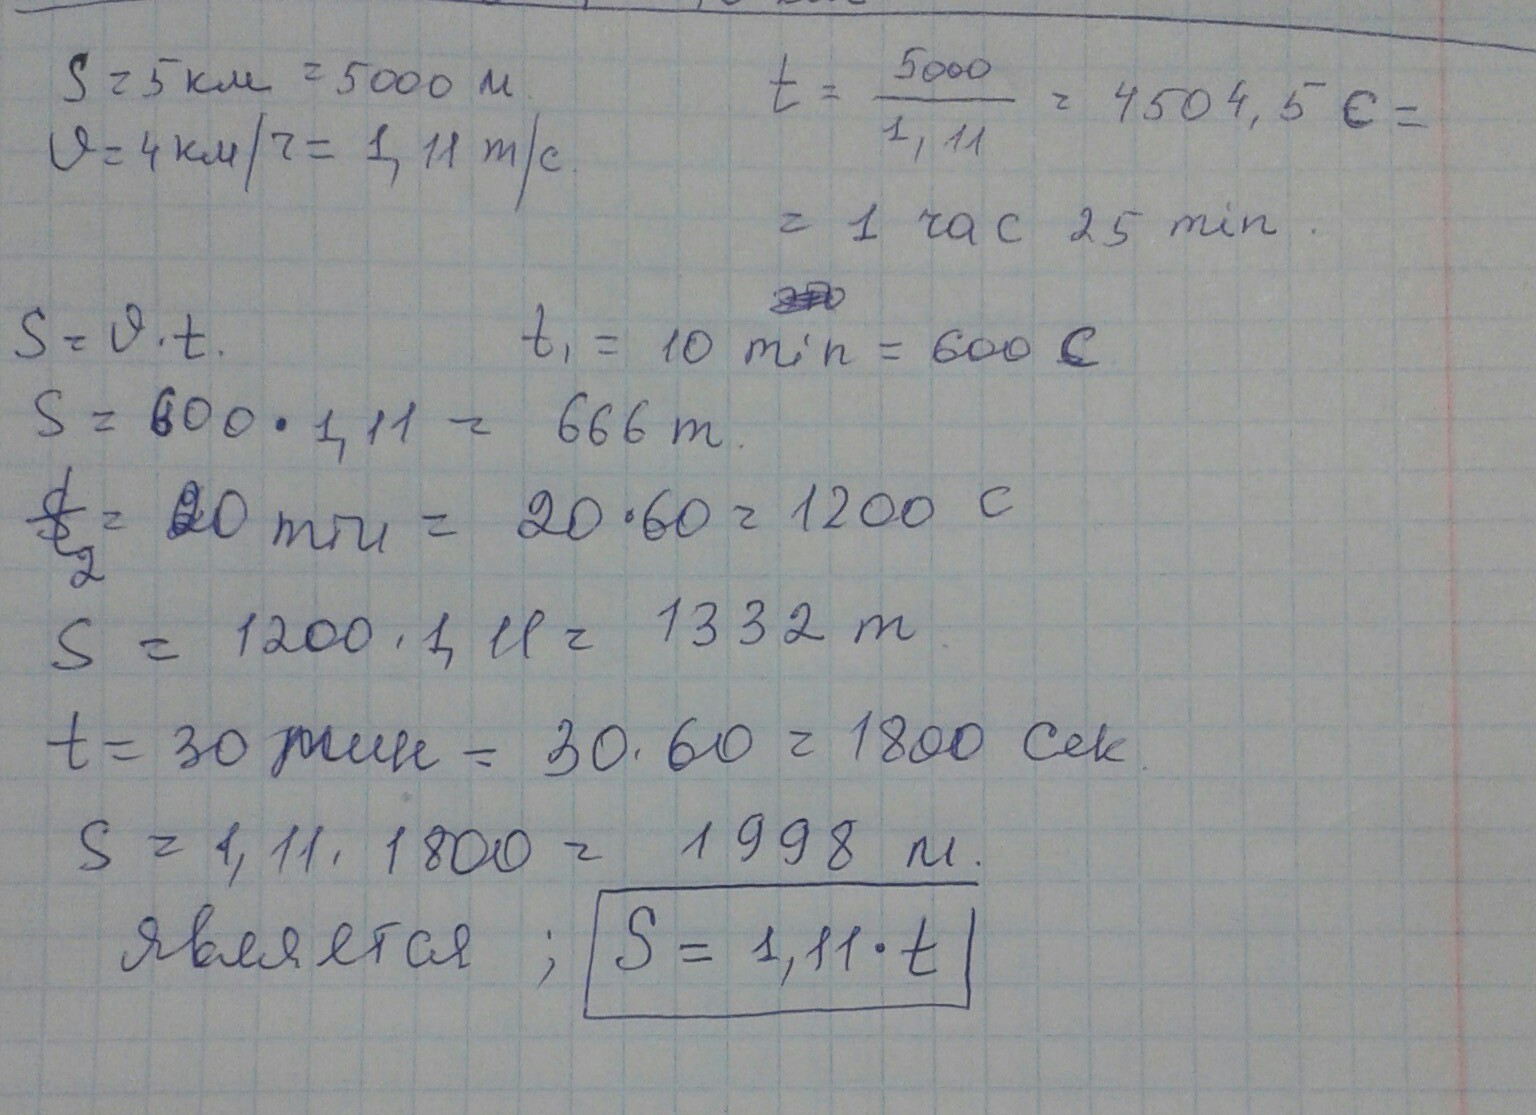 S = 5 км = 5000 м.
t = 5000 / 1,11 = 4504,5 с =
v = 4 км/ч = 1,11 m/c.
= 1 час 25 min.
S = v·t.
t₁ = 10 min = 600 с
S = 600 · 1,11 = 666 m.
t₂ = 20 min = 20·60 = 1200 с
S = 1200 · 1,11 = 1332 m.
t = 30 мин = 30·60 = 1800 сек.
S = 1,11 · 1800 = 1998 м.
является ; S = 1,11·t